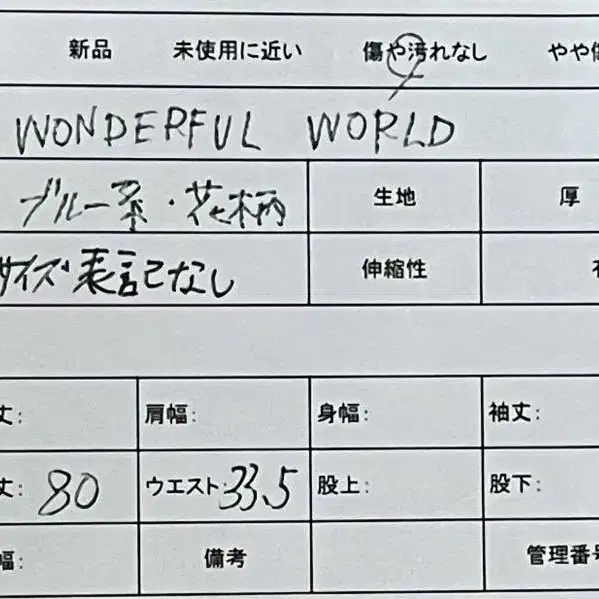 新品 未使用に近い 傷や汚れなし やや傷
WONDERFUL WORLD
ブルー系・花柄 生地 厚
サイズ表記なし 伸縮性
丈: 肩幅: 身幅: 袖丈:
丈: 80 ウエスト: 33.5 股上: 股下:
幅: 備考 管理番号